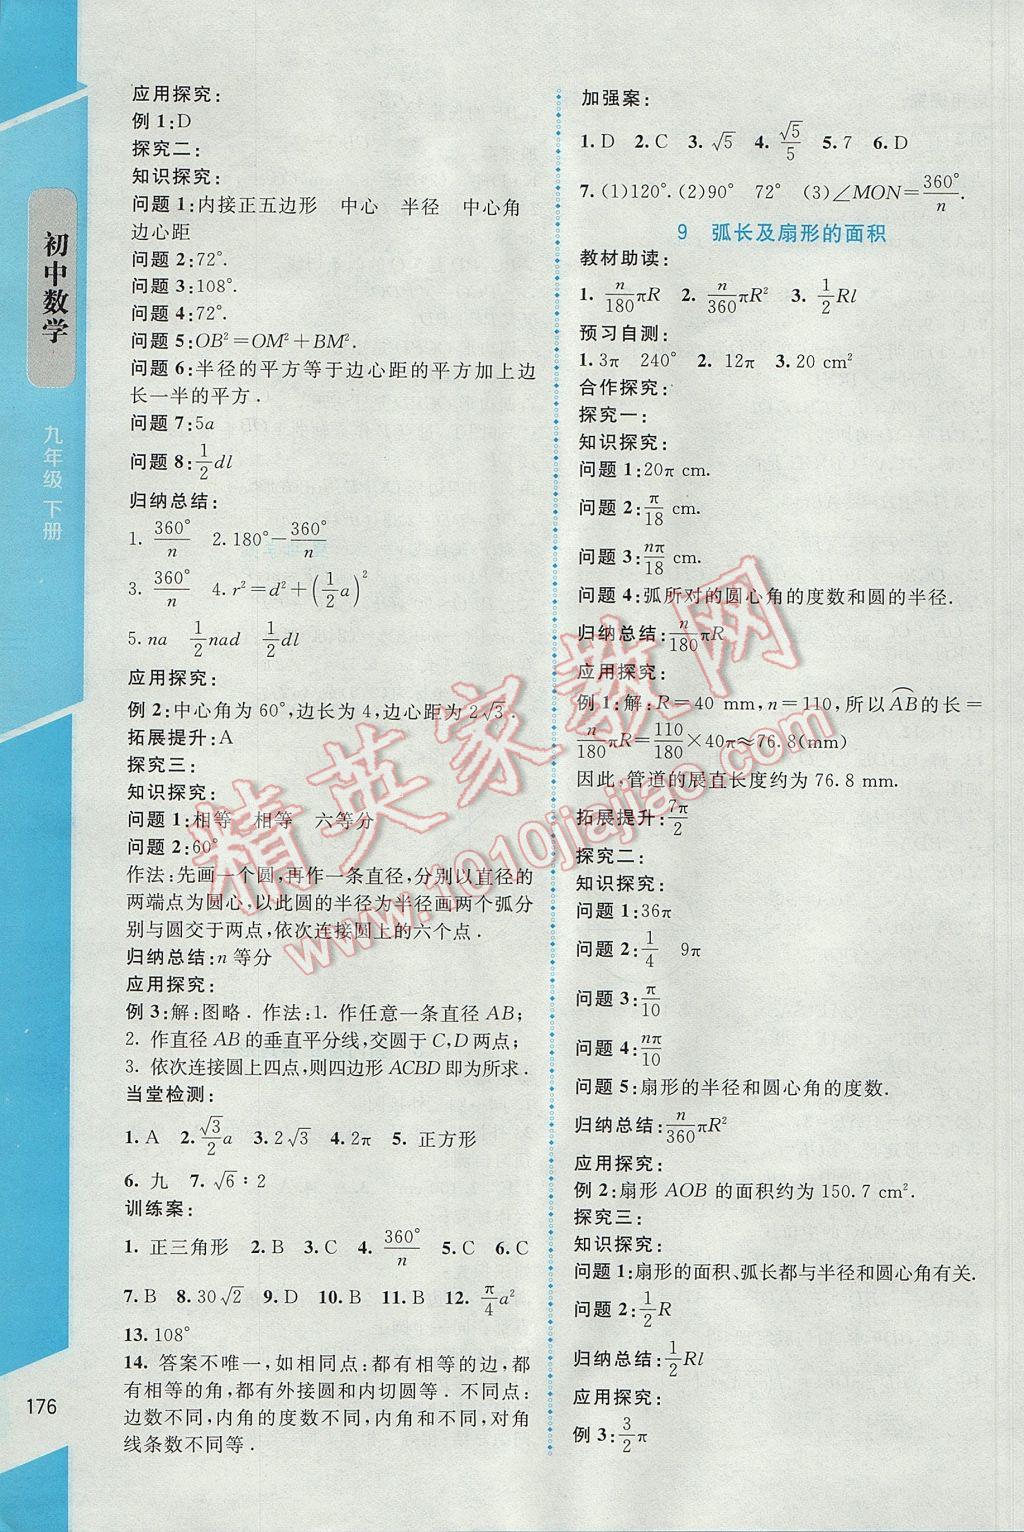 初中数学
九年级 下册
176
应用探究:
例 1:D
探究二:
知识探究:
问题 1:内接正五边形 中心 半径 中心角
边心距
问题 2:72°.
问题 3:108°.
问题 4:72°.
问题 5:OB²=OM²+BM².
问题 6:半径的平方等于边心距的平方加上边
长一半的平方.
问题 7:5a
问题 8:1/2 dl
归纳总结:
1. 360°/n 2.180°-360°/n
3. 360°/n 4.r²=d²+(1/2 a)²
5. na 1/2 nad 1/2 dl
应用探究:
例 2:中心角为 60°,边长为 4,边心距为 2√3.
拓展提升:A
探究三:
知识探究:
问题 1:相等 相等 六等分
问题 2:60°
作法:先画一个圆,再作一条直径,分别以直径的
两端点为圆心,以此圆的半径为半径画两个弧分
别与圆交于两点,依次连接圆上的六个点.
归纳总结:n 等分
应用探究:
例 3:解:图略. 作法:1. 作任意一条直径 AB;
2. 作直径 AB 的垂直平分线,交圆于 C,D 两点;
3. 依次连接圆上四点,则四边形 ACBD 即为所求.
当堂检测:
1. A 2. √3/2 a 3. 2√3 4. 2π 5. 正方形
6. 九 7. √6∶2
训练案:
1. 正三角形 2. B 3. C 4. 360°/n 5. C 6. C
7. B 8. 30√2 9. D 10. B 11. B 12. π/4 a²
13. 108°
14. 答案不唯一,如相同点:都有相等的边,都
有相等的角,都有外接圆和内切圆等. 不同点:
边数不同,内角的度数不同,内角和不同,对角
线条数不同等.
加强案:
1. D 2. C 3. √5 4. √5/5 5. 7 6. D
7. (1)120°.(2)90° 72° (3)∠MON=360°/n.
9 弧长及扇形的面积
教材助读:
1. n/180 πR 2. n/360 πR² 3. 1/2 Rl
预习自测:
1. 3π 240° 2. 12π 3. 20 cm²
合作探究:
探究一:
知识探究:
问题 1:20π cm.
问题 2:π/18 cm.
问题 3:nπ/18 cm.
问题 4:弧所对的圆心角的度数和圆的半径.
归纳总结:n/180 πR
应用探究:
例 1:解:R=40 mm,n=110,所以 A͡B的长=
n/180 πR=110/180×40π≈76.8(mm)
因此,管道的展直长度约为 76.8 mm.
拓展提升:7π/2
探究二:
知识探究:
问题 1:36π
问题 2:1/4 9π
问题 3:π/10
问题 4:nπ/10
问题 5:扇形的半径和圆心角的度数.
归纳总结:n/360 πR²
应用探究:
例 2:扇形 AOB 的面积约为 150.7 cm².
探究三:
知识探究:
问题 1:扇形的面积、弧长都与半径和圆心角有关.
问题 2:1/2 R
归纳总结:1/2 Rl
应用探究:
例 3:3/2 π
精英家教网
www.1010jiajiao.com